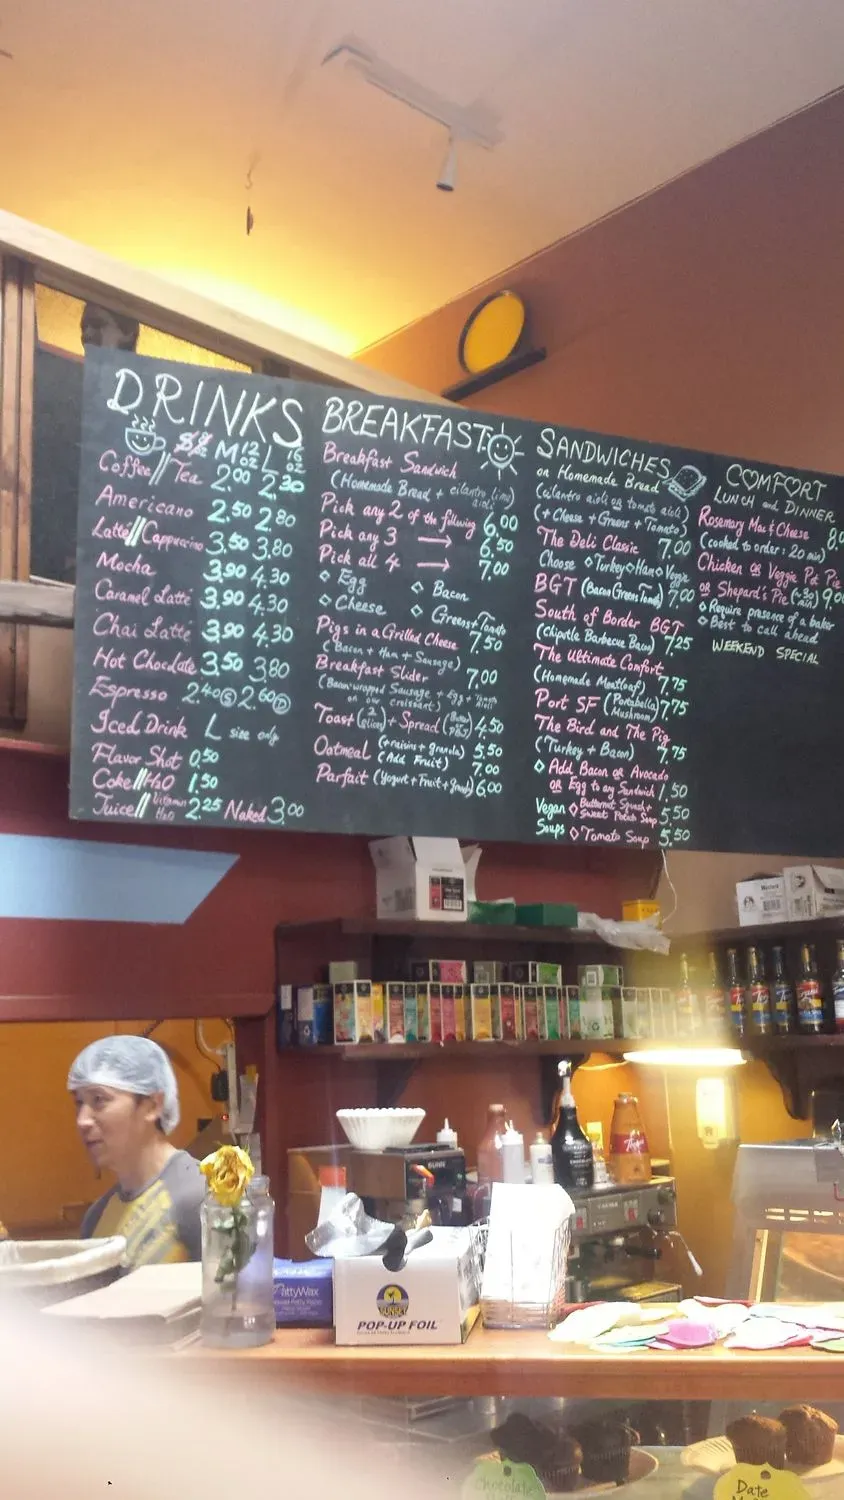 DRINKS
M 12 oz L 16 oz
Coffee // Tea 2.00 2.30
Americano 2.50 2.80
Latte // Cappuccino 3.50 3.80
Mocha 3.90 4.30
Caramel Latte 3.90 4.30
Chai Latte 3.90 4.30
Hot Chocolate 3.50 3.80
Espresso 2.40 S 2.60 D
Iced Drink L size only
Flavor Shot 0.50
Coke // H2O 1.50
Juice // Vitamin H2O 2.25 Naked 3.00
BREAKFAST
Breakfast Sandwich
(Homemade Bread + cilantro lime aioli)
Pick any 2 of the following 6.00
Pick any 3 → 6.50
Pick all 4 → 7.00
◇ Egg ◇ Bacon
◇ Cheese ◇ Greens + Tomato
Pigs in a Grilled Cheese 7.50
(Bacon + Ham + Sausage)
Breakfast Slider 7.00
(Bacon wrapped Sausage + Egg + Tomato aioli
on our croissant)
Toast (2 slices) + Spread 4.50
Oatmeal (+raisins + granola) 5.50
(Add Fruit) 7.00
Parfait (Yogurt + Fruit + granola) 6.00
SANDWICHES
on Homemade Bread
(cilantro aioli or tomato aioli)
(+ Cheese + Greens + Tomato)
The Deli Classic 7.00
Choose ◇ Turkey ◇ Ham ◇ Veggie
BGT (Bacon Greens Tomato) 7.00
South of Border BGT
(Chipotle Barbecue Bacon) 7.25
The Ultimate Comfort
(Homemade Meatloaf) 7.75
Port SF (Portabella Mushroom) 7.75
The Bird and The Pig
(Turkey + Bacon) 7.75
◇ Add Bacon or Avocado
or Egg to any Sandwich 1.50
Vegan Soups ◇ Butternut Squash + Sweet Potato Soup 5.50
◇ Tomato Soup 5.50
COMFORT
LUNCH and DINNER
Rosemary Mac & Cheese 8.
(cooked to order: 20 min)
Chicken or Veggie Pot Pie
or Shepard's Pie (~30 min) 9.00
◇ Require presence of a baker
◇ Best to call ahead
WEEKEND SPECIAL
PattyWax
SUNSET
POP-UP FOIL
Torani
Chocolate
Date